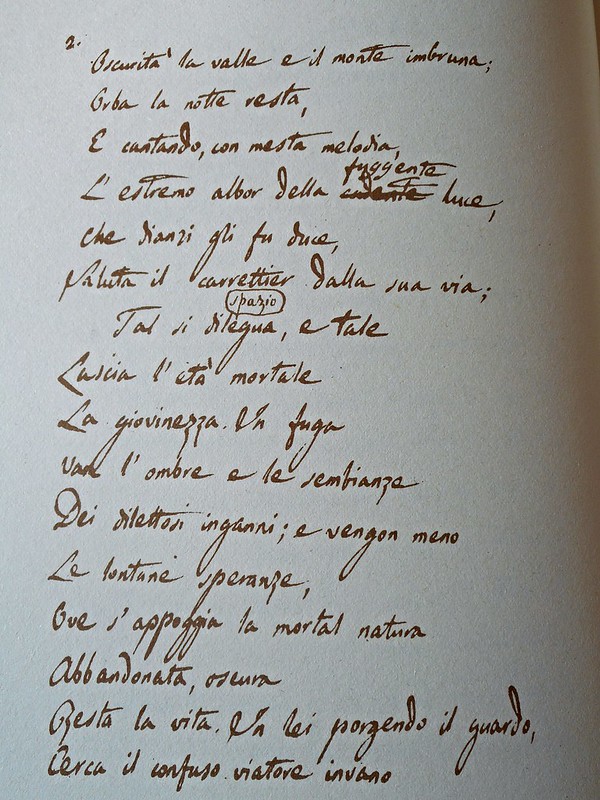 2.
Oscurità la valle e il monte imbruna;
Orba la notte resta,
E cantando, con mesta melodia,
fuggente
L'estremo albor della cadente luce,
Che dianzi gli fu duce,
Saluta il carrettier dalla sua via;
spazio
Tal si dilegua, e tale
Lascia l'età mortale
La giovinezza. In fuga
Van l'ombre e le sembianze
Dei dilettosi inganni; e vengon meno
Le lontane speranze,
Ove s'appoggia la mortal natura
Abbandonata, oscura
Resta la vita. In lei porgendo il guardo,
Cerca il confuso viatore invano